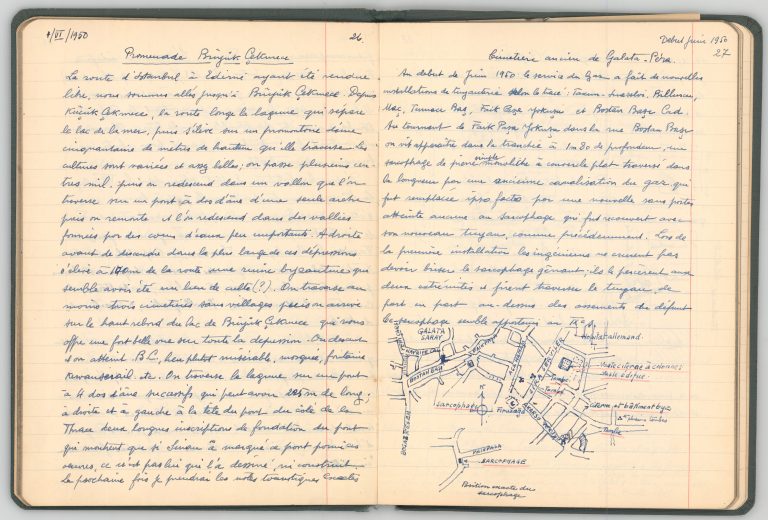 4/VI/1950
26.
Promenade Büyük Çekmece
La route d'Istanbul à Edirné ayant été rendue
libre, nous sommes allés jusqu'à Büyük Çekmece. Depuis
Küçük Çekmece, la route longe la lagune qui sépare
le lac de la mer, puis s'élève sur un promontoire d'une
cinquantaine de mètres de hauteur qu'elle traverse. Les
cultures sont variées et assez belles; on passe plusieurs
puis on redescend dans un vallon que l'on
traverse sur un pont à dos d'âne d'une seule arche
puis on remonte et l'on redescend dans des vallées
formées par des cours d'eau peu importants. A droite
avant de descendre dans la plus large de ces dépressions
s'élève à 100m de la route une ruine byzantine qui
semble avoir été un lieu de culte (?). On traverse au
moins trois cimetières sans villages puis on arrive
sur le haut rebord du lac de Büyük Çekmece qui nous
offre une fort belle vue sur toute la dépression. On descend
on atteint B.C., lieu plutôt misérable, mosquée, fontaine
Kervanserail etc. On traverse la lagune sur un pont
à 4 dos d'âne successifs qui peut avoir de long;
à droite et à gauche à la tête du pont du côté de la
Thrace deux longues inscriptions de fondation du pont
qui montrent que si Sinan a marqué ce pont parmi ces
œuvres, ce n'est pas lui qui l'a dessiné, ni construit
La prochaine fois je prendrai les notes touristiques
Début Juin 1950
27
Cimetière ancien de Galata-Péra.
Au début de Juin 1950 le service du Gaz a fait de nouvelles
installations de tuyauterie selon le tracé: Taxim. Ballurcu,
Maç, Turnacı Baş, Faik Paşa Yokuşu et Bostan Başı Cad.
Au tournant de Faik Paşa Yokuşu dans la rue Bostan Başı
on vit apparaître dans la tranchée à 1m80 de profondeur, une
sarcophage de pierre simple monolithe à couvercle plat traversé dans
la longueur par une ancienne canalisation du gaz, qui
fut remplacée ipso facto par une nouvelle sans porter
atteinte aucune au sarcophage qui fut recouvert avec
son nouveau tuyau, comme précédemment. Lors de
la première installation les ingénieurs ne crurent pas
devoir briser le sarcophage gênant; ils le percèrent aux
deux extrémités et firent traverser le tuyau, de
part en part au dessus des ossements du défunt
Ce sarcophage semble appartenir au
GALATA
SARAY
BOSTAN BAŞI
Hôpital allemand
Vaste citerne à colonnes
sous édifice
Sarcophage
N
Firuzağa
Tempo
Citerne et bâtiment byz
FAIK PAŞA
SARCOPHAGE
Position exacte du
sarcophage